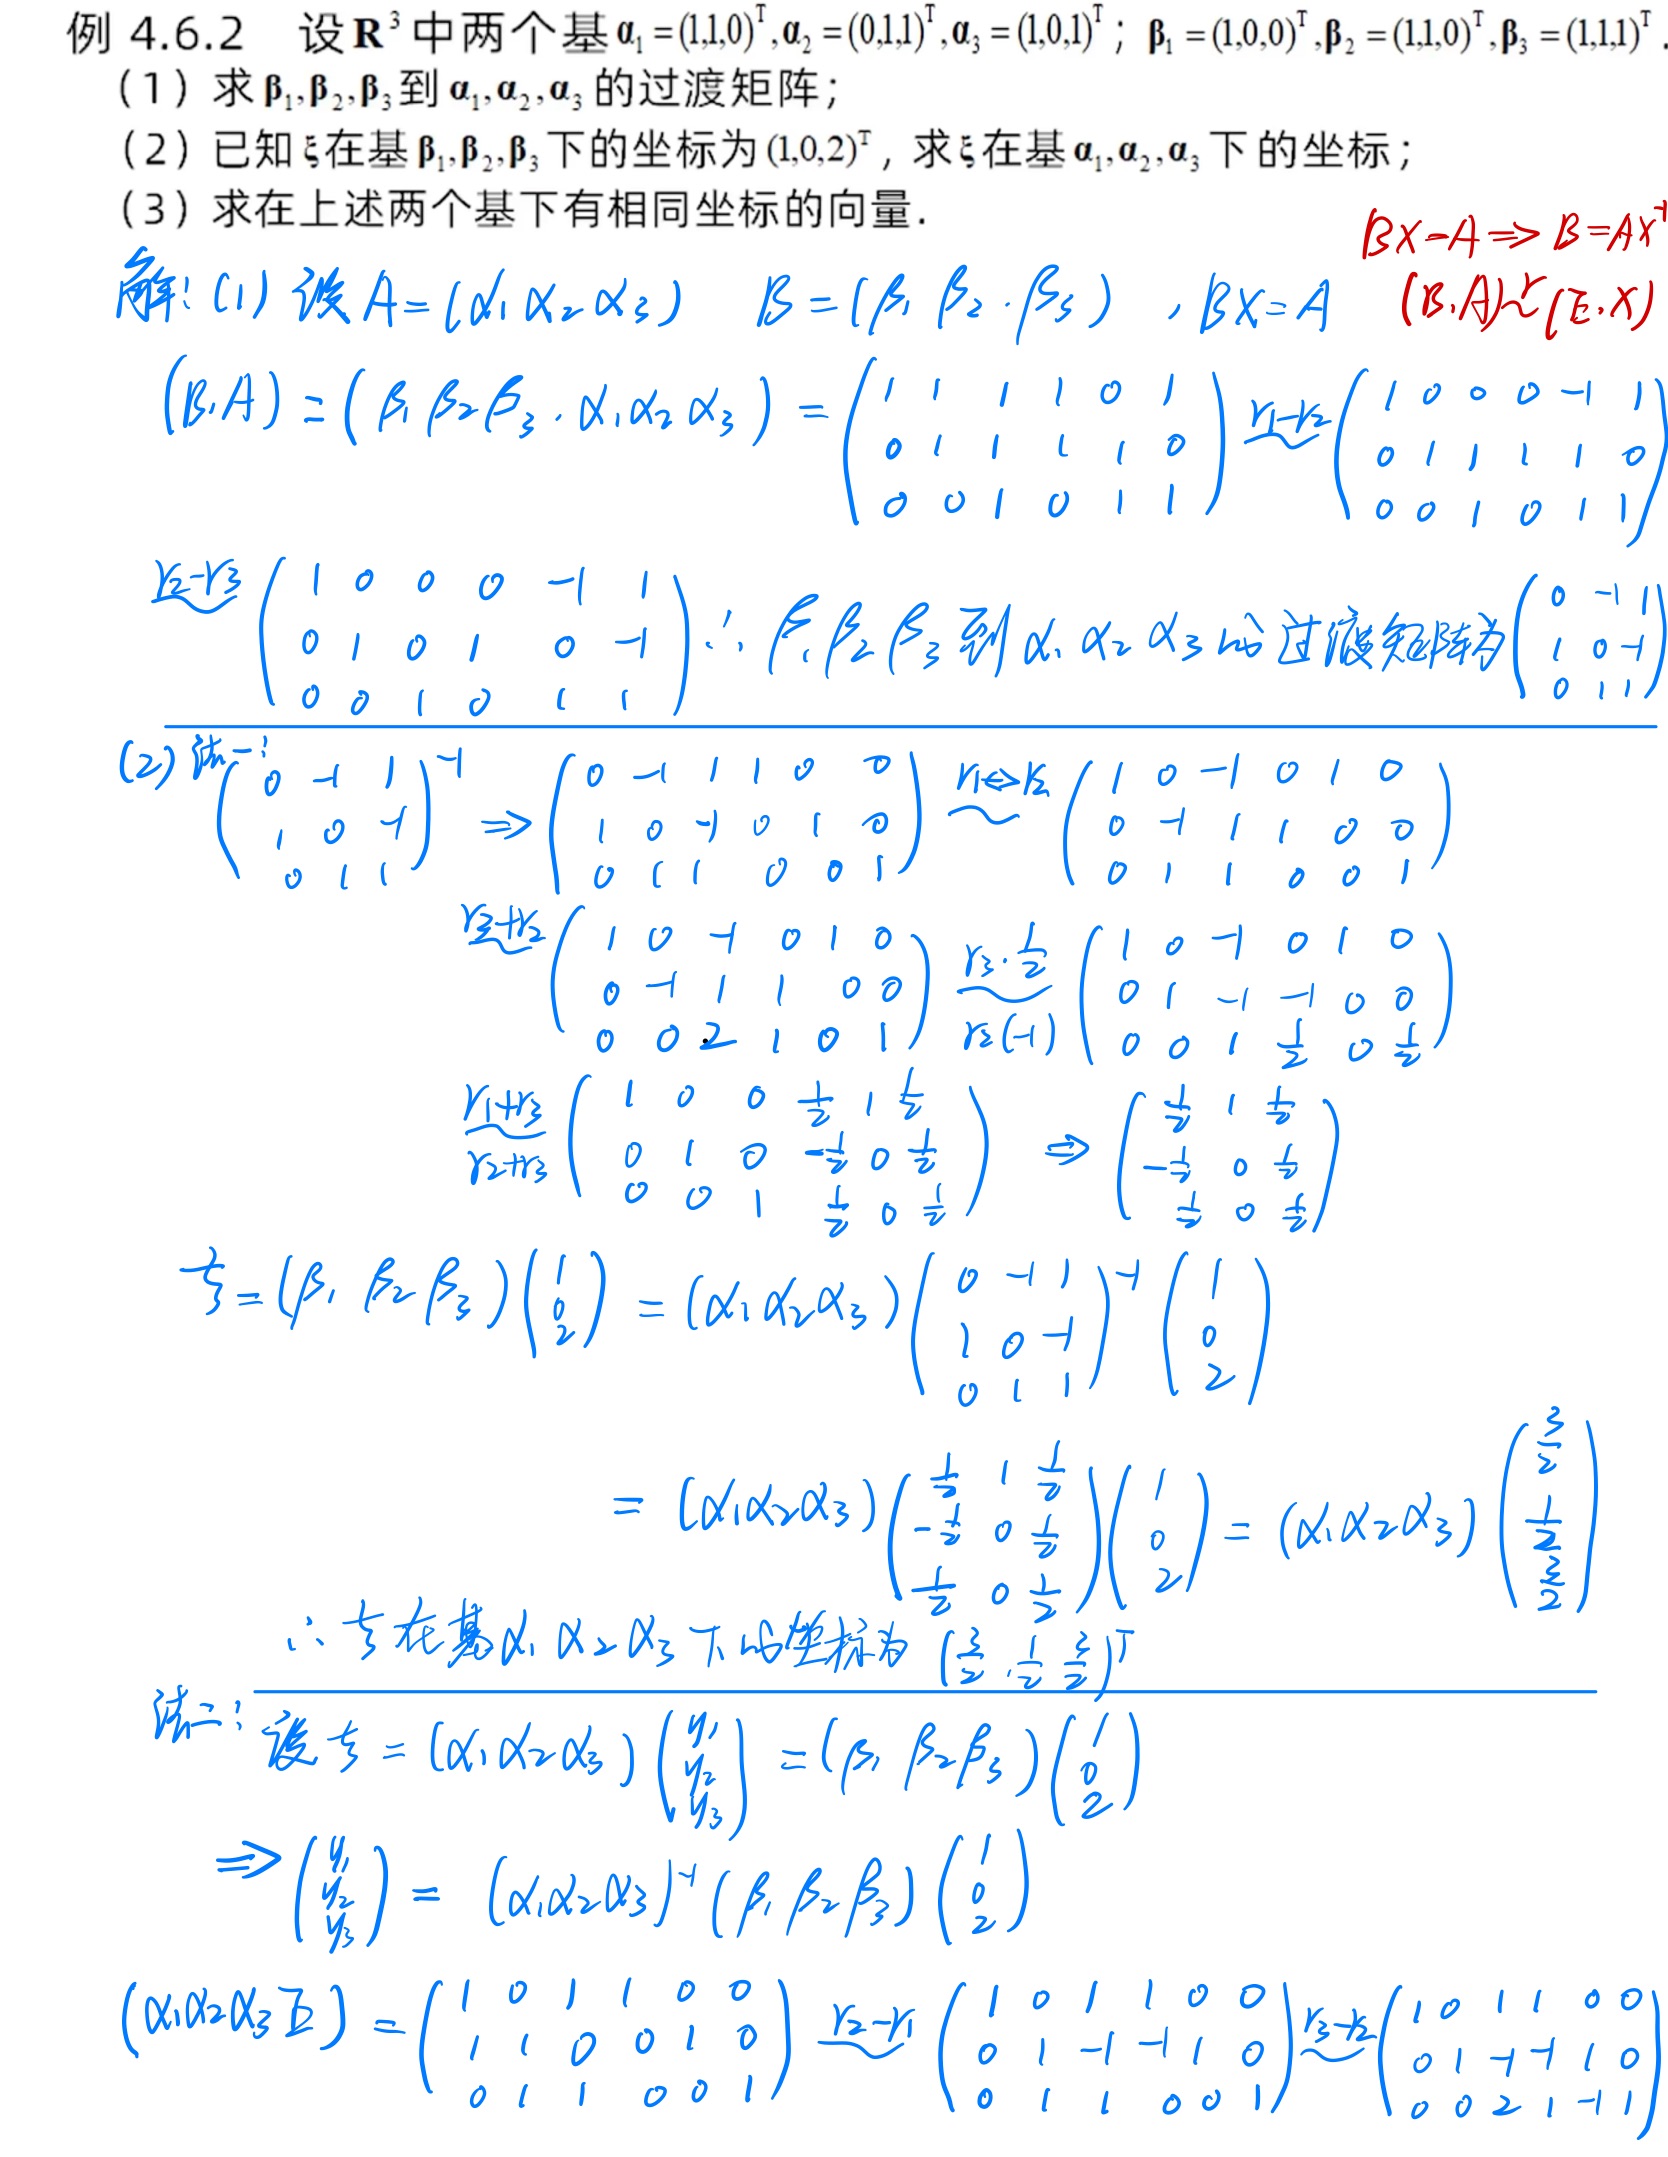 例 4.6.2 设 R³ 中两个基 α₁ = (1,1,0)ᵀ, α₂ = (0,1,1)ᵀ, α₃ = (1,0,1)ᵀ； β₁ = (1,0,0)ᵀ, β₂ = (1,1,0)ᵀ, β₃ = (1,1,1)ᵀ.
（1）求 β₁, β₂, β₃ 到 α₁, α₂, α₃ 的过渡矩阵；
（2）已知 ξ 在基 β₁, β₂, β₃ 下的坐标为 (1,0,2)ᵀ，求 ξ 在基 α₁, α₂, α₃ 下的坐标；
（3）求在上述两个基下有相同坐标的向量.
BX=A ⇒ B=AX⁻¹
解：(1) 设 A=(α₁ α₂ α₃) B=(β₁ β₂ · β₃) , BX=A (B,A) ~r (E,X)
(B,A) = (β₁ β₂ β₃ , α₁ α₂ α₃) = (1 1 1 1 0 1; 0 1 1 1 1 0; 0 0 1 0 1 1) r₁-r₂ ~ (1 0 0 0 -1 1; 0 1 1 1 1 0; 0 0 1 0 1 1)
r₂-r₃ ~ (1 0 0 0 -1 1; 0 1 0 1 0 -1; 0 0 1 0 1 1) ∴ β₁ β₂ β₃ 到 α₁ α₂ α₃ 的过渡矩阵为 (0 -1 1; 1 0 -1; 0 1 1)
(2) 法一： (0 -1 1; 1 0 -1; 0 1 1)⁻¹ ⇒ (0 -1 1 1 0 0; 1 0 -1 0 1 0; 0 1 1 0 0 1) r₁↔r₂ ~ (1 0 -1 0 1 0; 0 -1 1 1 0 0; 0 1 1 0 0 1)
r₃+r₂ ~ (1 0 -1 0 1 0; 0 -1 1 1 0 0; 0 0 2 1 0 1) r₃·1/2 ~ r₂(-1) (1 0 -1 0 1 0; 0 1 -1 -1 0 0; 0 0 1 1/2 0 1/2)
r₁+r₃ ~ r₂+r₃ (1 0 0 1/2 1 1/2; 0 1 0 -1/2 0 1/2; 0 0 1 1/2 0 1/2) ⇒ (1/2 1 1/2; -1/2 0 1/2; 1/2 0 1/2)
ξ = (β₁ β₂ β₃)(1; 0; 2) = (α₁ α₂ α₃)(0 -1 1; 1 0 -1; 0 1 1)⁻¹ (1; 0; 2)
= (α₁ α₂ α₃)(1/2 1 1/2; -1/2 0 1/2; 1/2 0 1/2)(1; 0; 2) = (α₁ α₂ α₃)(3/2; 1/2; 3/2)
∴ ξ 在基 α₁ α₂ α₃ 下的坐标为 (3/2, 1/2 3/2)ᵀ
法二： 设 ξ = (α₁ α₂ α₃)(y₁; y₂; y₃) = (β₁ β₂ β₃)(1; 0; 2)
⇒ (y₁; y₂; y₃) = (α₁ α₂ α₃)⁻¹ (β₁ β₂ β₃)(1; 0; 2)
(α₁ α₂ α₃ E) = (1 0 1 1 0 0; 1 1 0 0 1 0; 0 1 1 0 0 1) r₂-r₁ ~ (1 0 1 1 0 0; 0 1 -1 -1 1 0; 0 1 1 0 0 1) r₃-r₂ ~ (1 0 1 1 0 0; 0 1 -1 -1 1 0; 0 0 2 1 -1 1)